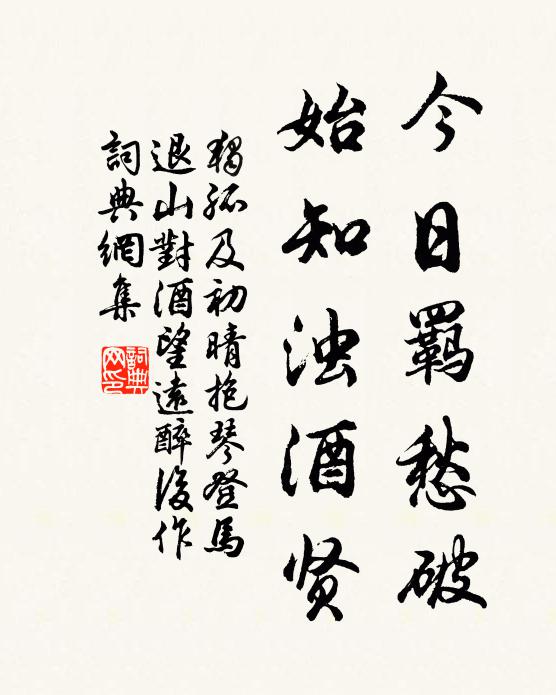 今日羁愁破
始知浊酒贤
獨孤及初晴抱琴登馬
退山對酒望遠醉後作
詞典網集
詞典网印